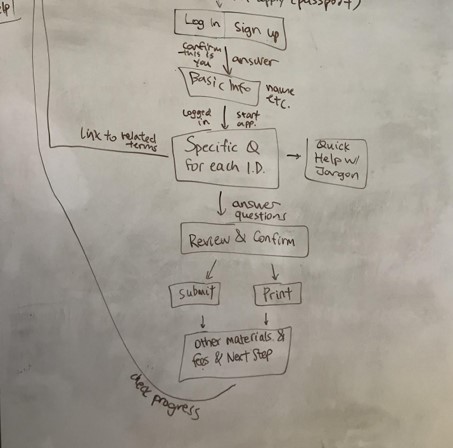 Log in | Sign up
confirm this is you
answer
Basic Info
name etc.
Logged in
start app.
Link to related terms
Specific Q
for each I.D.
Quick
Help w/
Jargon
answer
questions
Review & Confirm
Submit
Print
Other materials &
fees & Next Step
check progress